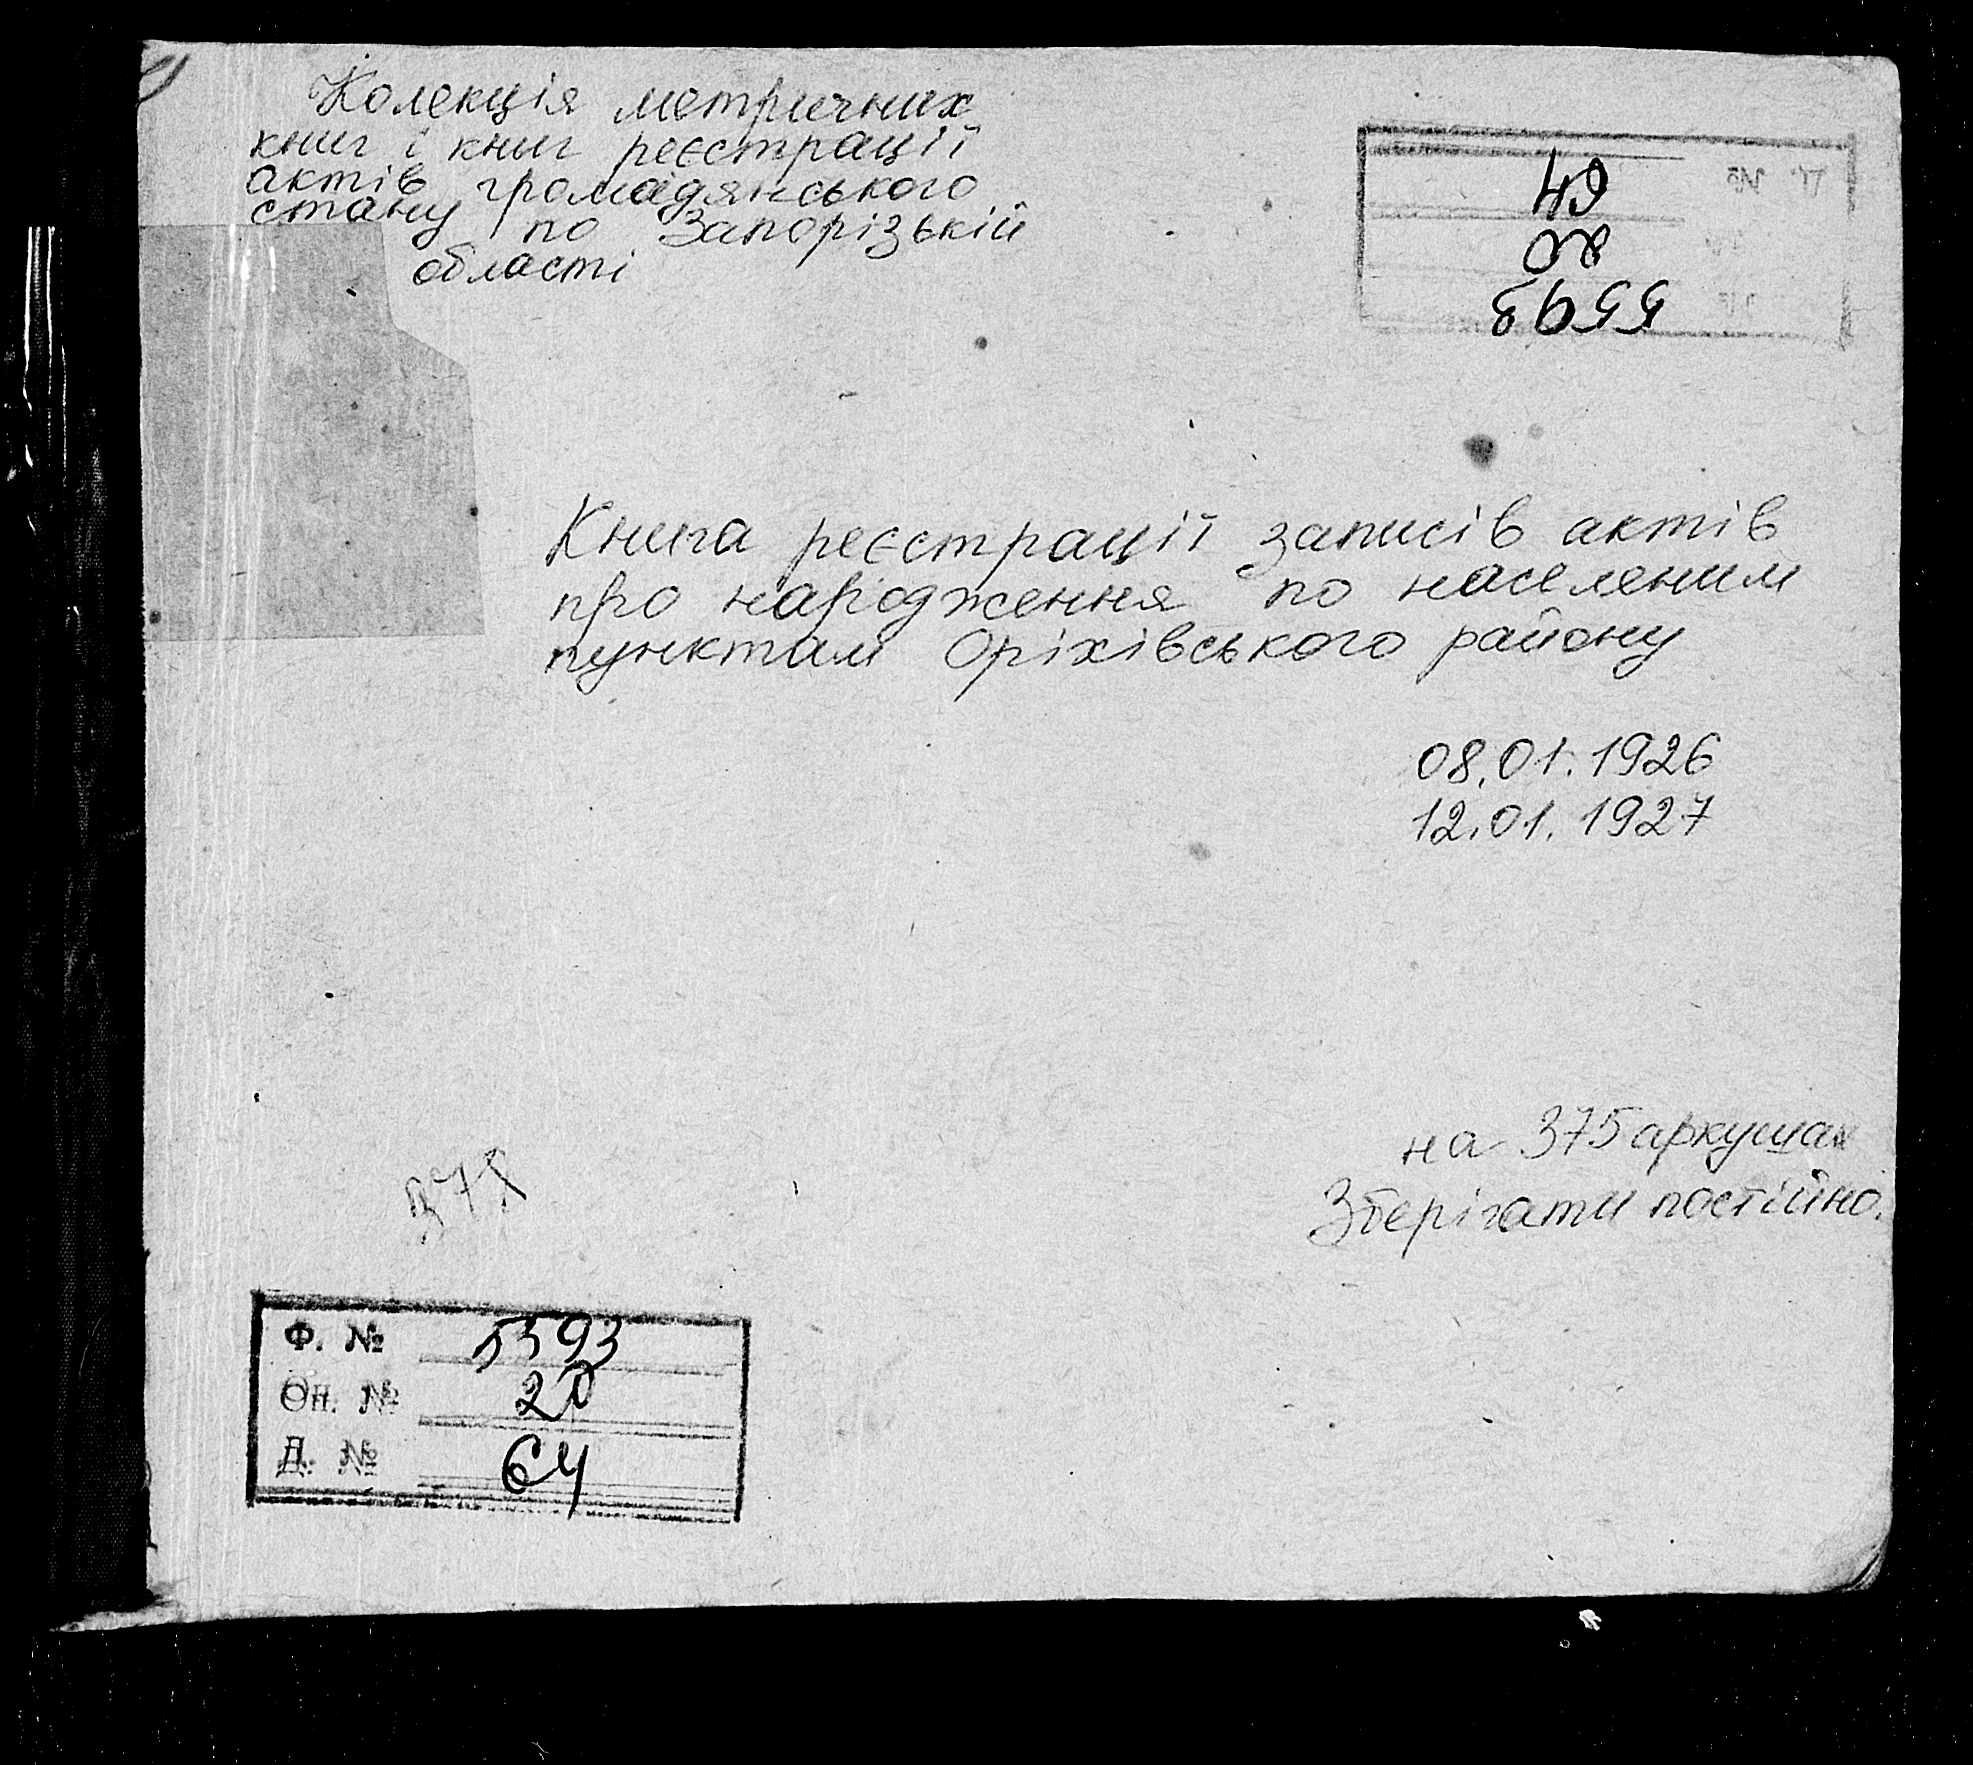 Колекція метричних
книг і книг реєстрації
актів громадянського
стану по Запорізькій
області
64
20
5593
Книга реєстрації записів актів
про народження по населеним
пунктам Оріхівського району
08.01.1926
12.01.1927
на 375 аркушах
Зберігати постійно.
Ф. № 5593
Оп. № 20
Д. № 64